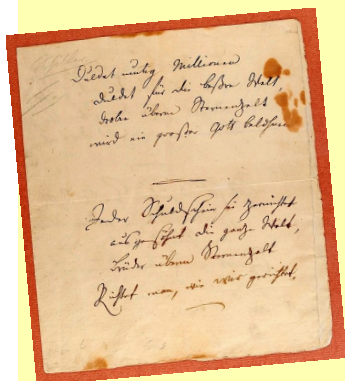 Duldet mutig Millionen
Duldet für die beßre Welt,
droben überm Sternenzelt
wird ein großer Gott belohnen
Jeder Schuldschein sei zernichtet
ausgesöhnt die ganze Welt,
Brüder überm Sternenzelt
Richtet man, wie wir gerichtet.